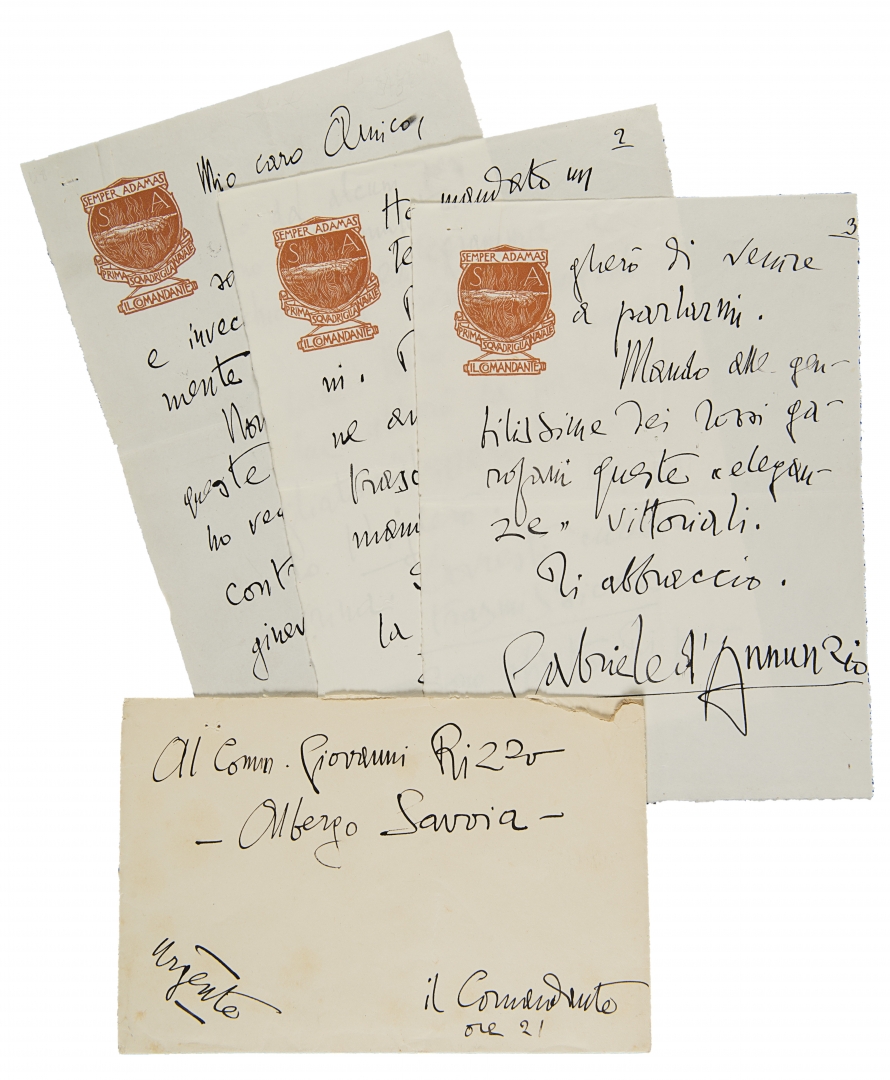 Mio caro Amico,
SEMPER ADAMAS
S A
PRIMA SQUADRIGLIA NAVALE
IL COMANDANTE
so
e invec
mente
Non
queste
ho ve
cont
ginev
2
Ho mandato un
SEMPER ADAMAS
S A
PRIMA SQUADRIGLIA NAVALE
IL COMANDANTE
Te
ni.
ne an
trasc
man
la
3
SEMPER ADAMAS
S A
PRIMA SQUADRIGLIA NAVALE
IL COMANDANTE
gherò di venire
a parlarmi.
Mando alle gen-
tilissime dei rossi ga-
rofani queste « elegan-
ze » vittoriali.
Ti abbraccio.
Gabriele d'Annunzio
Al Comm. Giovanni Rizzo
- Albergo Savoia -
urgente
il Comandante
ore 21